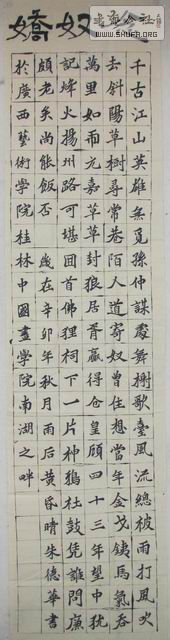 念奴嬌
千古江山英雄無覓孫仲謀處舞榭歌臺風流總被雨打風吹
去斜陽草樹尋常巷陌人道寄奴曾住想當年金戈鐵馬氣吞
萬里如虎元嘉草草封狼居胥贏得倉皇顧四十三年望中猶
記烽火揚州路可堪回首佛狸祠下一片神鴉社鼓憑誰問廉
頗老矣尚能飯否 歲在辛卯年秋月雨后黃昏晴朱德華書
於廣西藝術學院桂林中國畫學院南湖之畔
WWW.SHUFA.ORG